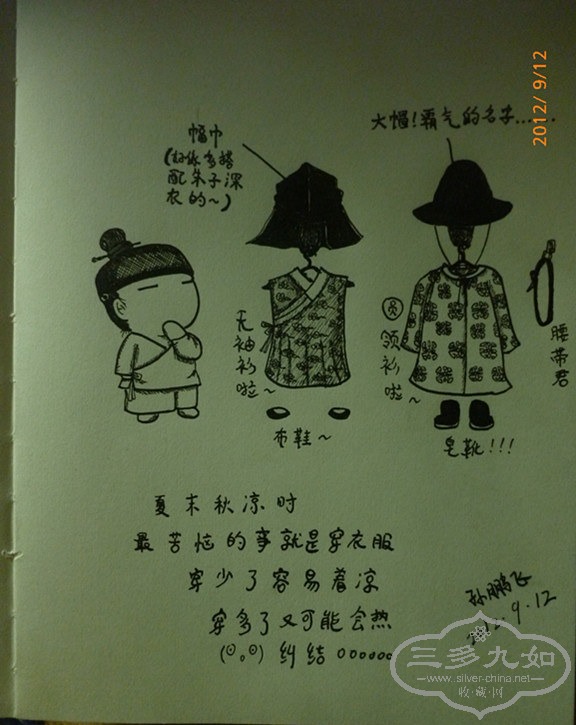 2012/ 9/12
大帽!霸气的名字......
幅巾
(好像多搭
配朱子深
衣的~)
无
袖
衫
啦~
圆
领
衫
啦~
腰
带
君
布鞋~
皂靴!!!
夏末秋凉时
最苦恼的事就是穿衣服
穿少了容易着凉
穿多了又可能会热
纠结 oooooo
孙鹏飞
2012.9.12
三多九如
—www.silver-china.net—
收·藏·网